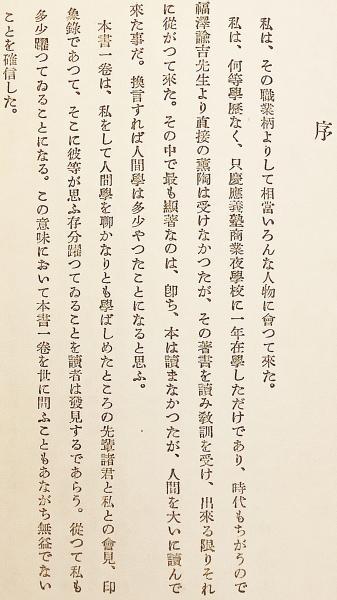 序
私は、その職業柄よりして相當いろんな人物に會つて來た。
私は、何等學歴なく、只慶應義塾商業夜學校に一年在學しただけであり、時代もちがうので
福澤諭吉先生より直接の薫陶は受けなかつたが、その著書を讀み教訓を受け、出來る限りそれ
に從がつて來た。その中で最も顯著なのは、卽ち、本は讀まなかつたが、人間を大いに讀んで
來た事だ。換言すれば人間學は多少やつたことになると思ふ。
本書一卷は、私をして人間學を聊かなりとも學ばしめたところの先輩諸君と私との會見、印
象錄であつて、そこに彼等が思ふ存分躍つてゐることを讀者は發見するであらう。從つて私も
多少躍つてゐることになる。この意味において本書一卷を世に問ふこともあながち無益でない
ことを確信した。